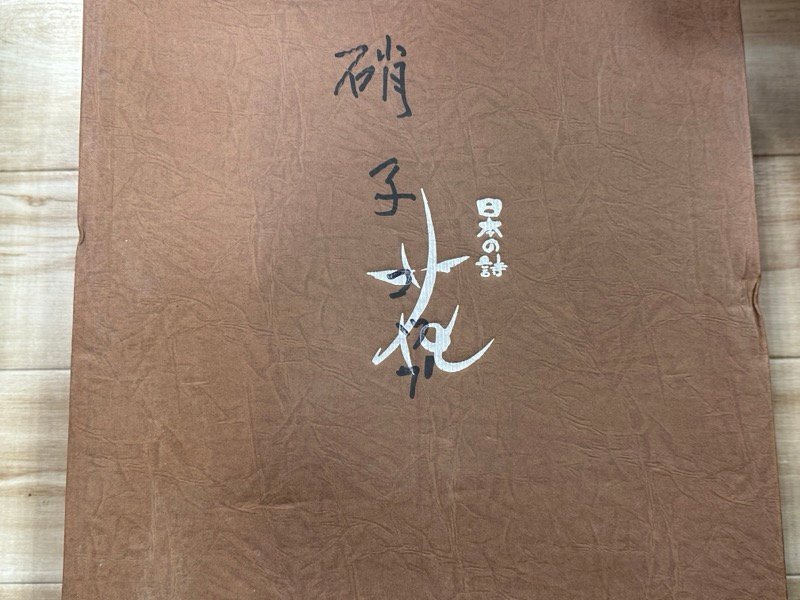 日本の詩
花
硝子